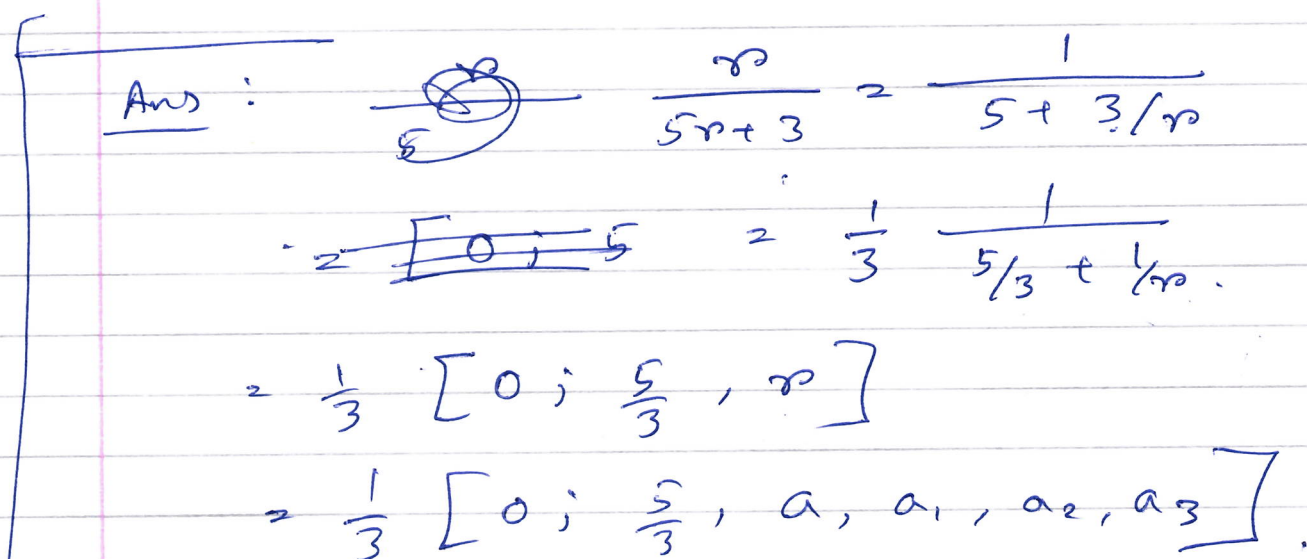 Ans : r/(5r + 3) = 1/(5 + 3/r)
= [0; 5 = 1/3 1/(5/3 + 1/r).
= 1/3 [0; 5/3, r]
= 1/3 [0; 5/3, a, a₁, a₂, a₃].